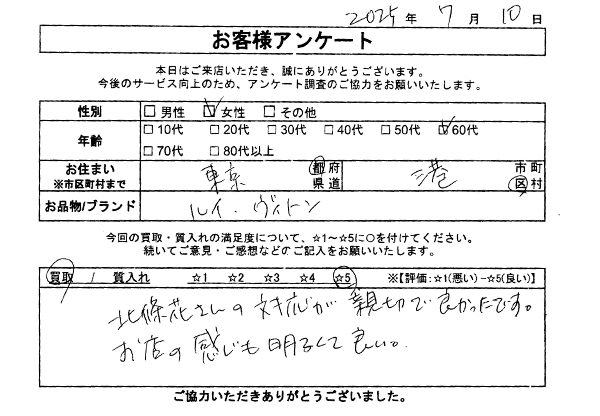 2025年 7月 10日
お客様アンケート
本日はご来店いただき、誠にありがとうございます。
今後のサービス向上のため、アンケート調査のご協力をお願いいたします。
性別 □男性 ☑女性 □その他
年齢 □10代 □20代 □30代 □40代 □50代 ☑60代
□70代 □80代以上
お住まい
※市区町村まで 東京 都府県道 港 市町区村
お品物/ブランド ルイ・ヴィトン
今回の買取・質入れの満足度について、☆1～☆5に○を付けてください。
続いてご意見・ご感想などのご記入をお願いいたします。
買取 / 質入れ ☆1 ☆2 ☆3 ☆4 ☆5 ※【評価:☆1(悪い)－☆5(良い)】
北條花さんの対応が親切で良かったです。
お店の感じも明るくて良い。
ご協力いただきありがとうございました。